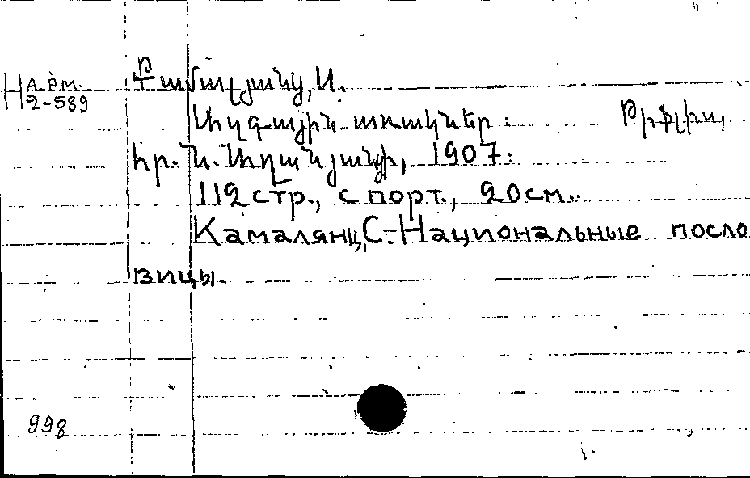 На.рм.
2-539
Քամալյանց, Ս.
Ազգային առակներ. Թիֆլիս,
հր. Ն. Աղանյանի, 1907.
112 стр., с порт., 20см.
Камалянц,С.-Национальные посло
вицы.
998